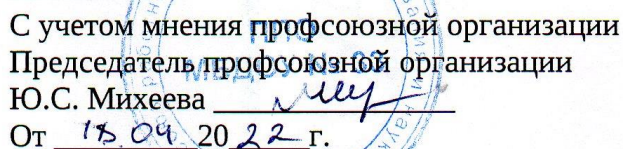 С учетом мнения профсоюзной организации
Председатель профсоюзной организации
Ю.С. Михеева
От 04 2022 г.